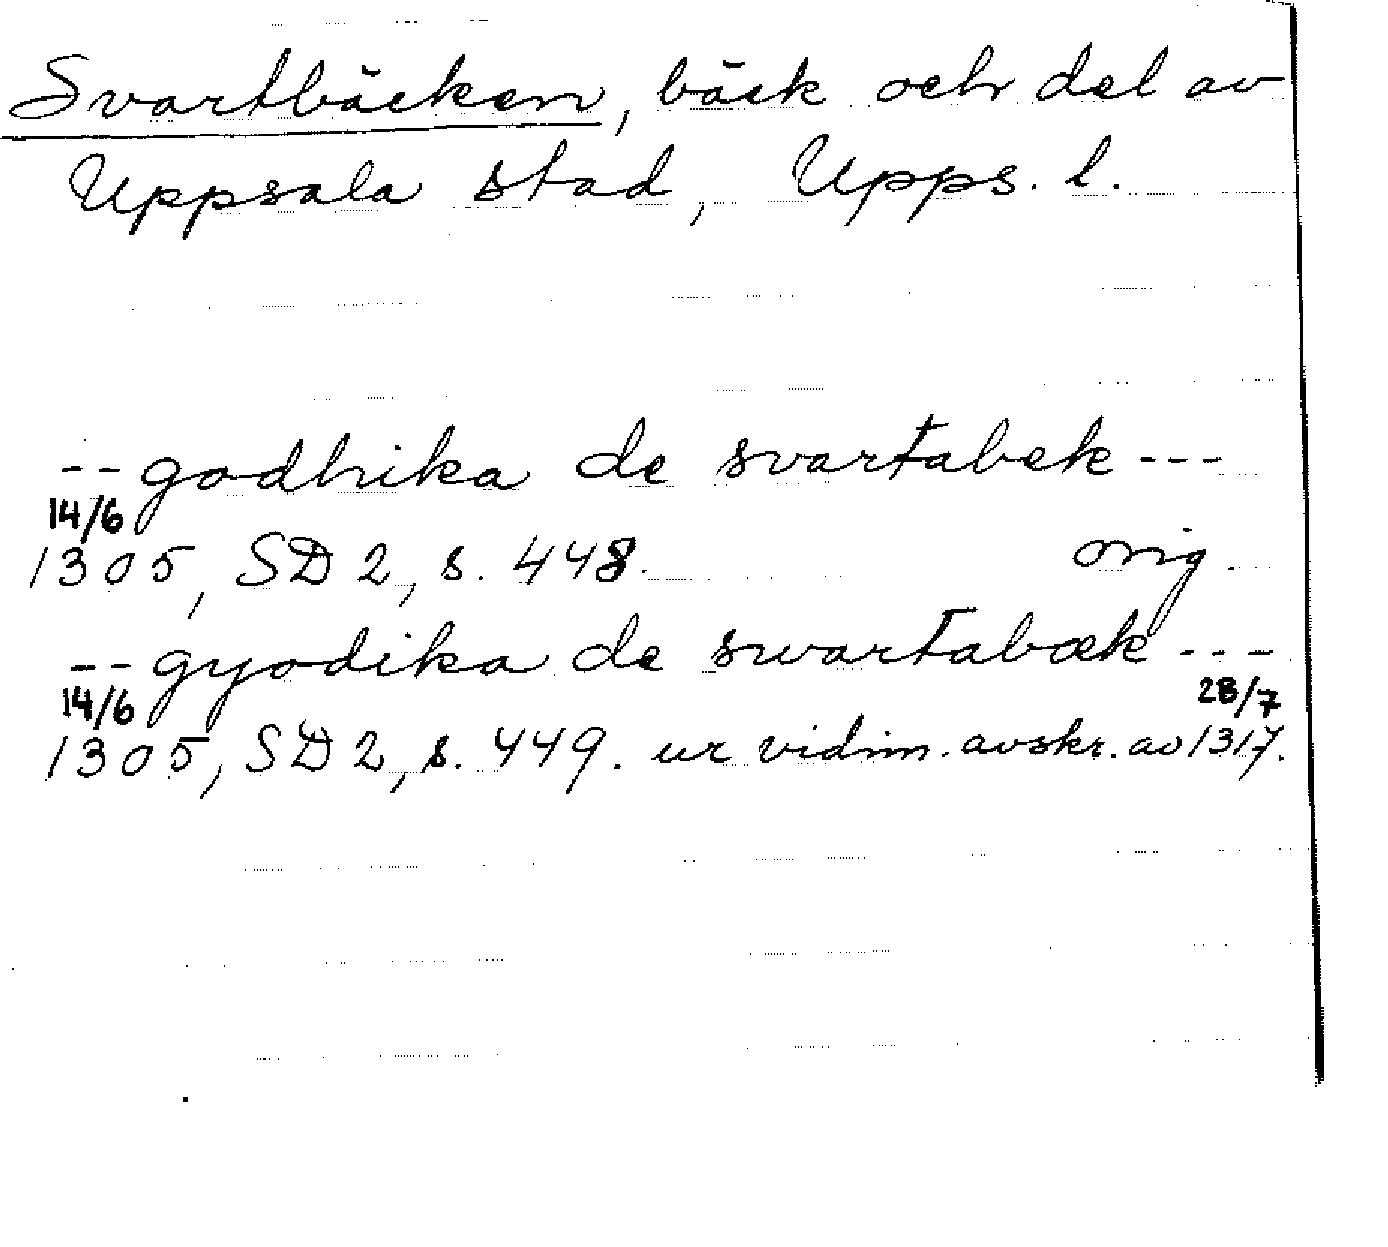 Svartbäcken, bäck och del av
Uppsala stad, Upps. l.
--godhika de svartabek---
14/6
1305, SD 2, s. 448. orig.
--gyodika de swartabæk---
14/6 28/7
1305, SD 2, s. 449. ur vidim. avskr. av 1317.